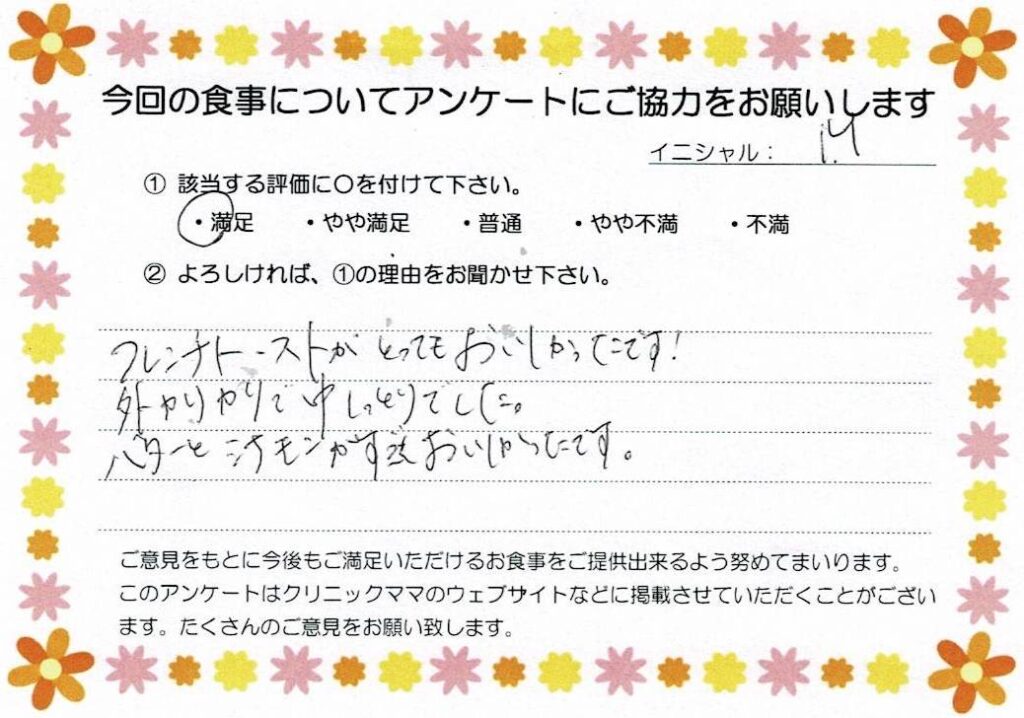 今回の食事についてアンケートにご協力をお願いします
イニシャル：
① 該当する評価に〇を付けて下さい。
・満足　・やや満足　・普通　・やや不満　・不満
② よろしければ、①の理由をお聞かせ下さい。
フレンチトーストがとってもおいしかったです！
外かりかりで中しっとりでした。
バターとシナモンがおいしかったです。
ご意見をもとに今後もご満足いただけるお食事をご提供出来るよう努めてまいります。
このアンケートはクリニックママのウェブサイトなどに掲載させていただくことがござい
ます。たくさんのご意見をお願い致します。